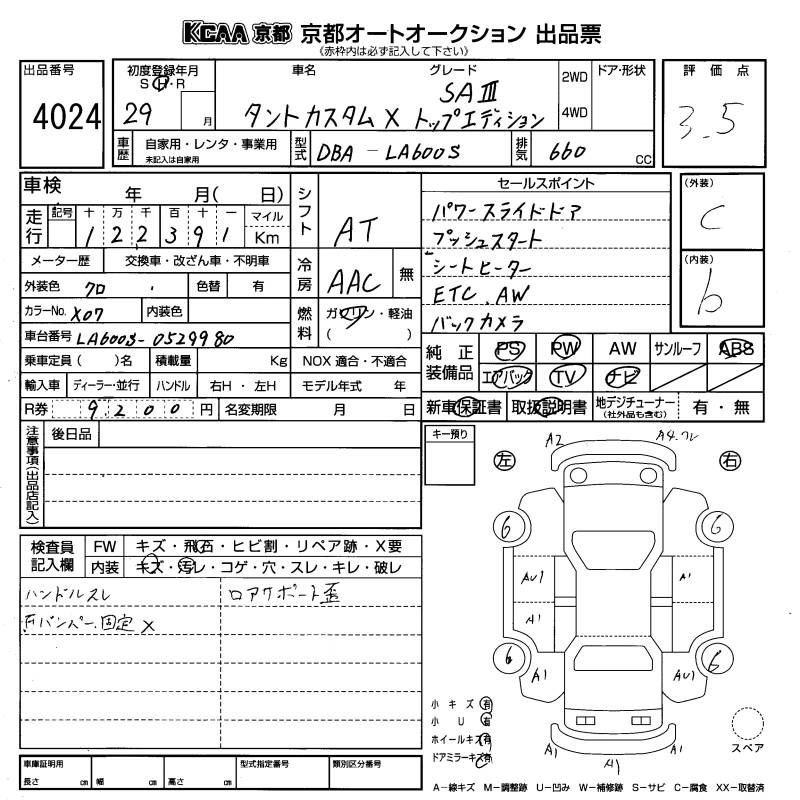 KCAA 京都 京都オートオークション 出品票
《赤枠内は必ず記入して下さい》
出品番号
4024
初度登録年月
S・H・R
29 月
車名
グレード
タントカスタム X
SA III
トップエディション
2WD
4WD
ドア・形状
評価点
3.5
車歴
自家用・レンタ・事業用
未記入は自家用
型式
DBA-LA600S
排気
660 CC
車検 年 月( 日)
シフト
AT
走行
記号 十 万 千 百 十 一 マイル
1 2 2 3 9 1 Km
メーター歴 交換車・改ざん車・不明車
冷房
AAC
無
外装色 クロ 色替 有
カラーNo. X07 内装色
燃料
ガソリン・軽油
( )
車台番号 LA600S-0529980
乗車定員( )名 積載量 Kg NOX 適合・不適合
輸入車 ディーラー・並行 ハンドル 右H・左H モデル年式 年
R券 9200円 名変期限 月 日
セールスポイント
パワースライドドア
プッシュスタート
シートヒーター
ETC. AW
バックカメラ
(外装)
C
(内装)
b
純正装備品
PS PW AW サンルーフ ABS
エアバック TV ナビ
新車保証書 取扱説明書 地デジチューナー(社外品も含む) 有・無
注意事項(出品店記入)
後日品
キー預り
検査員記入欄
FW キズ・飛石・ヒビ割・リペア跡・X要
内装 キズ・汚レ・コゲ・穴・スレ・キレ・破レ
ハンドルスレ
ロアサポート歪
バンパー固定 X
左
右
A2
A4.ワレ
6
6
AU1
A1
A1
6
6
A1
AU1
A1
A1
A1
小キズ 有
小U 有
ホイールキズ 有
ドアミラーキズ 有
スペア
車庫証明用
長さ cm 幅 cm 高さ cm
型式指定番号
類別区分番号
A-線キズ M-調整跡 U-凹み W-補修跡 S-サビ C-腐食 XX-取替済